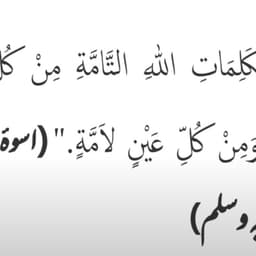 بِكَلِمَاتِ اللهِ التَّامَّةِ مِنْ كُلِّ
وَمِنْ كُلِّ عَيْنٍ لاَمَّةٍ." (اسوۃ
وسلم)